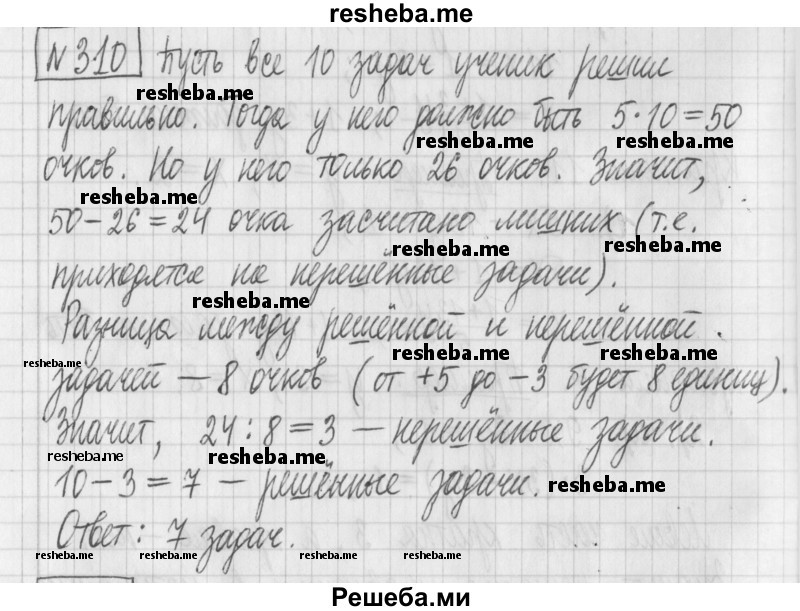 resheba.me
№310 Пусть все 10 задач ученик решил
resheba.me
правильно. Тогда у него должно быть 5·10=50
resheba.me resheba.me
очков. Но у него только 26 очков. Значит,
resheba.me
50-26=24 очка засчитано лишних (т.е.
resheba.me resheba.me
приходятся на нерешённые задачи).
resheba.me
Разница между решённой и нерешённой
resheba.me resheba.me resheba.me
задачей — 8 очков (от +5 до -3 будет 8 единиц).
Значит, 24:8=3 — нерешённые задачи.
resheba.me resheba.me
10-3=7 — решённые задачи.
resheba.me
Ответ: 7 задач.
resheba.me resheba.me resheba.me resheba.me
Решеба.ми